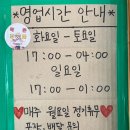 *영업시간 안내*
화요일 - 토요일
17:00 - 04:00
일요일
17:00 - 01:00
♥매주 월요일 정기휴무♥
포장, 배달 문의